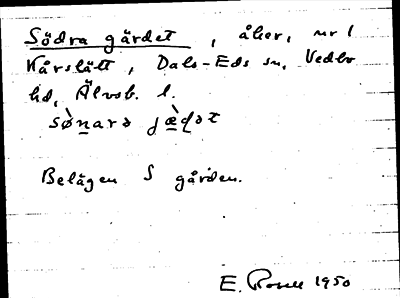 Södra gärdet, åker, nr 1
Kårslätt, Dals-Eds sn, Vedbo
hd, Älvsb. l.
sø̀narə jæ̀ḍət
Belägen S gården.
E. 1950